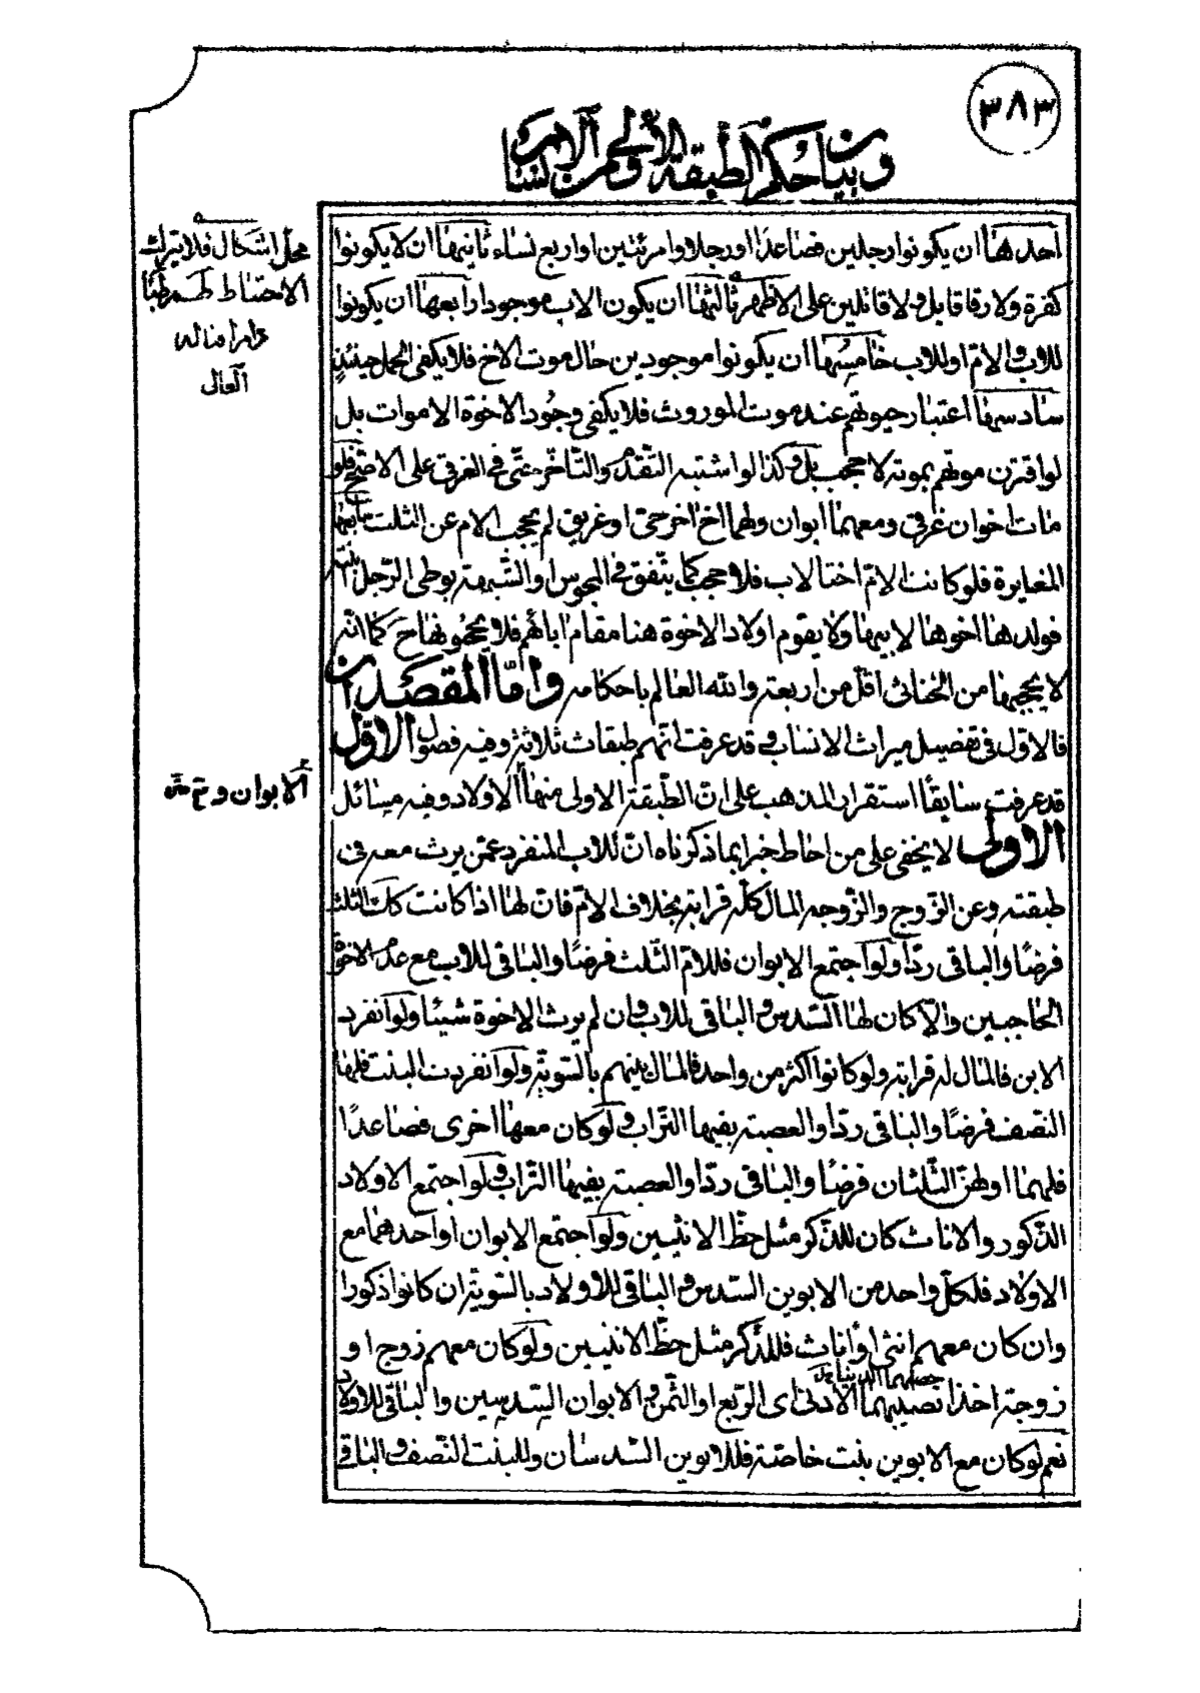 ٣٨٣
وبيان حكم الطبقة الأولى من الانساب
احدها ان يكونوا رجلين فصاعدا او رجلا وامرئتين او اربع نساء ثانيها ان لا يكونوا
كفرة ولا رقا قابل ولا قاتلين على الاظهر ثالثها ان يكون الاب موجودا رابعها ان يكونوا
للاب والامّ او للاب خامسها ان يكونوا موجودين حال موت الاخ فلا يكفى الحمل حينئذٍ
سادسها اعتبار حيوتهم عند موت الموروث فلا يكفى وجود الاخوة الاموات بل
لو اقترن موتهم بموته لا حجب بل وكذا لو اشتبه التقدم والتأخر حتى فى الغرقى على الاصح فلو
مات اخوان غرقى ومعهما ابوان ولهما اخ اخر حى او غريق لم يحجب الام عن الثلث سابعها
المغايرة فلو كانت الامّ اختا لاب فلا حجب كما يتّفق فى المجوس او الشّبهة بوطى الرّجل ابنته
فولدها اخوها لابيها ولا يقوم اولاد الاخوة هنا مقام ابائهم فلا يحجبونها ح كما انّه
لا يحجبها من الخناثى اقلّ من اربعة والله العالم باحكامه وامّا المقصدان
فالاوّل فى تفصيل ميراث الانساب وقد عرفت انّهم طبقات ثلاثة وفيه فصول الاوّل
قد عرفت سابقاً استقرار المذهب على انّ الطّبقة الاولى منها الاولاد وفيه مسائل
الاولى لا يخفى على من احاط خبرا بما ذكرناه انّ للاب المنفرد عمّن يرث معه فى
طبقته وعن الزّوج والزّوجه المال كلّه قرابة بخلاف الامّ فانّ لها اذا كانت كك الثلث
فرضًا والباقى ردّا ولو اجتمع الابوان فللامّ الثّلث فرضًا والباقى للاب مع عدم الاخوة
الحاجبين والّا كان لها السّدس والباقى للاب وان لم يرث الاخوة شيئا ولو انفرد
الابن فالمال له قرابة ولو كانوا اكثر من واحد فالمال بينهم بالسّويّة ولو انفردت البنت فلها
النّصف فرضًا والباقى ردّا والعصبة بفيها التّراب ولو كان معها اخرى فصاعدًا
فلهما او لهنّ الثّلثان فرضًا والباقى ردّا والعصبة بفيها التّراب ولو اجتمع الاولاد
الذّكور والاناث كان للذّكر مثل حظّ الانثيين ولو اجتمع الابوان او احدهما مع
الاولاد فلكلّ واحد من الابوين السّدس والباقى للاولاد بالسّويّة ان كانوا ذكورا
وان كان معهم انثى او اناث فللذّكر مثل حظّ الانثيين ولو كان معهم زوج او
زوجة اخذا نصيبهما الادنى اى الرّبع او الثّمن والابوان السّدسين والباقى للاولاد
نعم لو كان مع الابوين بنت خاصّة فللابوين السّدسان وللبنت النّصف والباقى
محلّ اشكال فلا يترك
الاحتياط
العالى
الابوان و